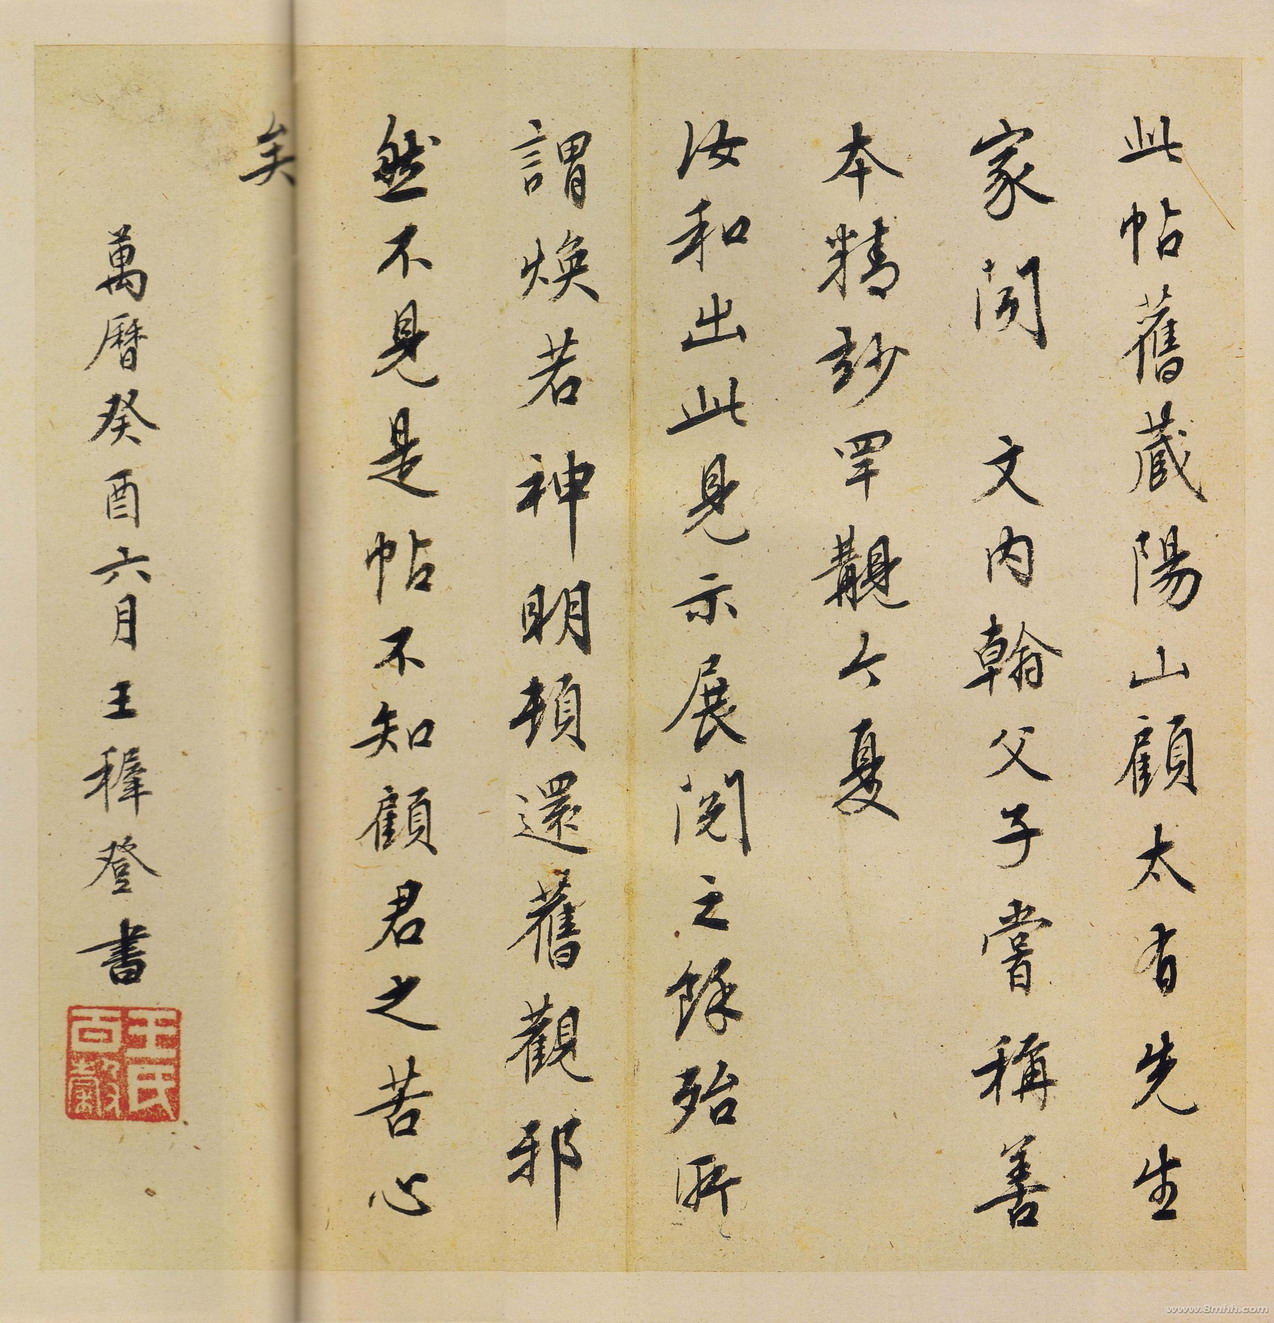 此帖舊藏陽山顧太有先生
家聞 文內翰父子嘗稱善
本精妙罕覯今夏
汝和出此見示展閱之餘殆所
謂煥若神明頓還舊觀邪
然不見是帖不知顧君之苦心
矣
萬曆癸酉六月王穉登書
王氏百穀
www.8mhh.com